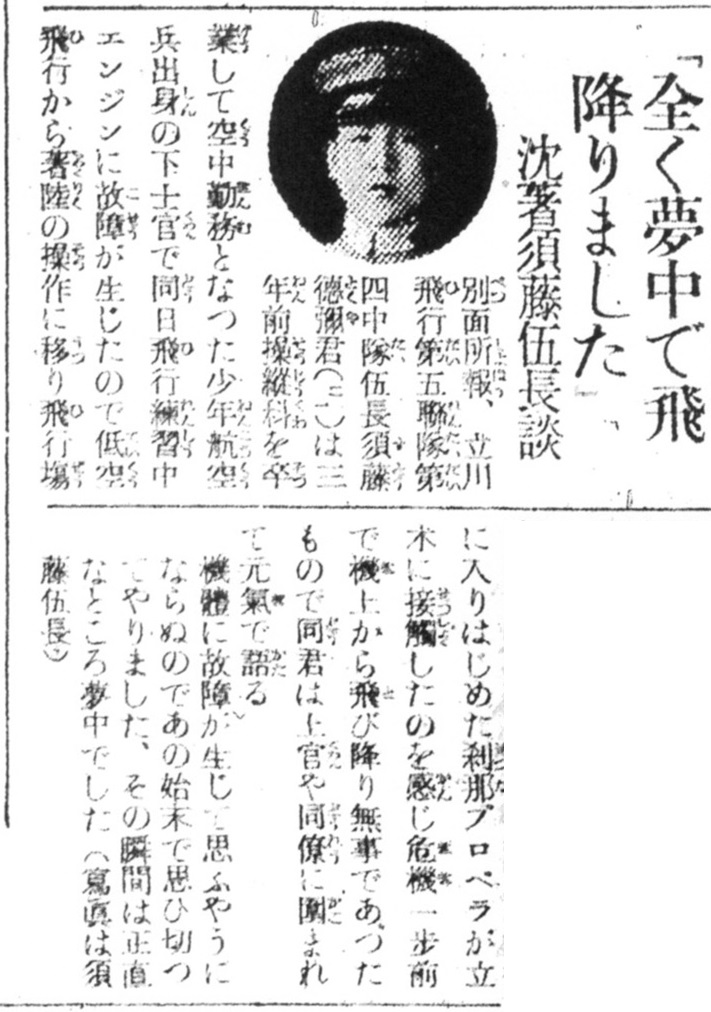 「全く夢中で飛
降りました」
沈着須藤伍長談
別面所報、立川
飛行第五聯隊第
四中隊伍長須藤
徳彌君(二一)は三
年前操縦科を卒
業して空中勤務と
なつた少年航空
兵出身の下士官で同日飛行練習中
エンジンに故障が生じたので低空
飛行から著陸の操作に移り飛行場
に入りはじめた刹那プロペラが立
木に接觸したのを感じ危機一歩前
で機上から飛び降り無事であつた
もので同君は上官や同僚に圍まれ
て元氣で語る
機體に故障が生じて思ふやうに
ならぬのであの始末で思ひ切つ
てやりました、その瞬間は正直
なところ夢中でした(寫眞は須
藤伍長)